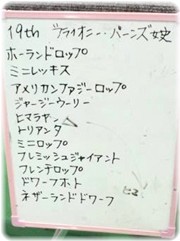 19th ブライオニー・バーンズ女史
ホーランドロップ
ミニレッキス
アメリカンファジーロップ
ジャージーウーリー
ヒマラヤン
トリアンタ
ミニロップ
フレミッシュジャイアント
フレンチロップ
ドワーフホト
ネザーランドドワーフ